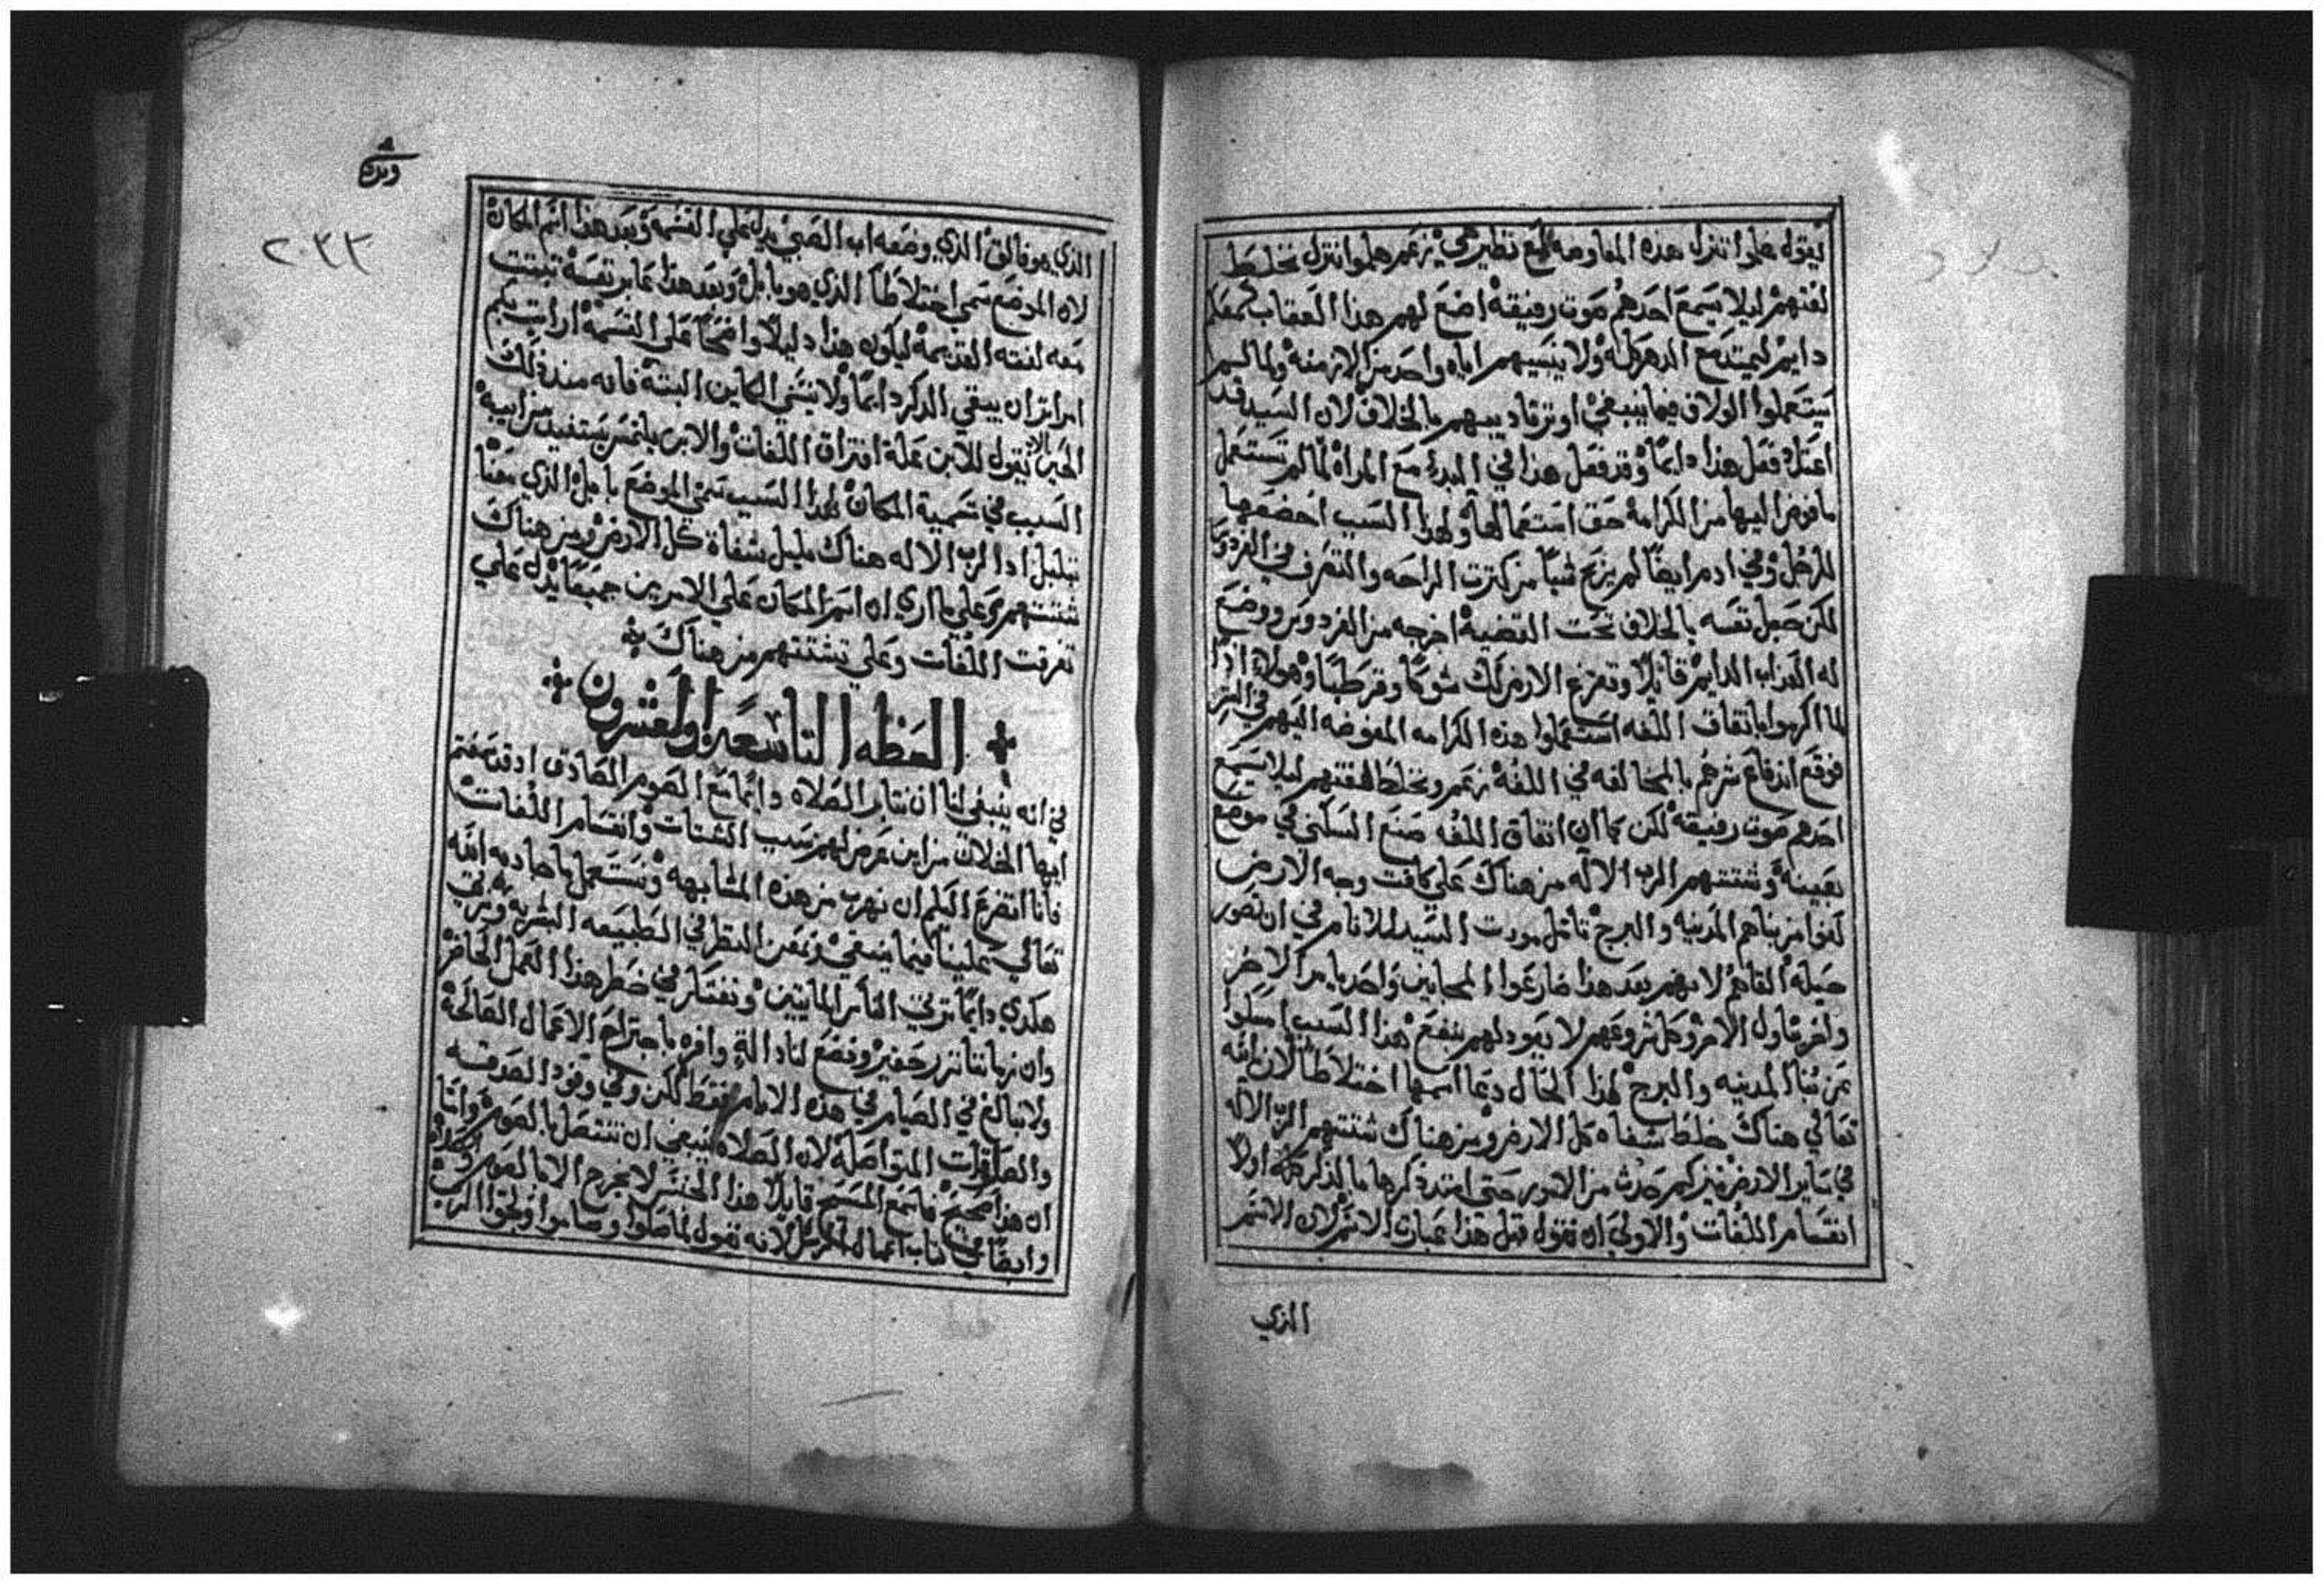 ليقول هلموا ننزل هذه المفاوضه مع نظير في زعم هلموا ننزل نخلط
لغتهم ليلا يسمع احدهم صوت رفيقه اضع لهم هذا العقاب كمعلم
دايم ليمتد مع الدهر كله ولا ينسيهم اياه واحد من الازمنه ولما لم
يستعملوا الولاق فيما ينبغي اوتر تاديبهم بالخلاف لان السيد قد
اعتاد فعل هذا دايمًا وقد فعل هذا في البدء مع المراه لما لم تستعمل
ما فوض اليها من الكرامة حق استعمالها ولهذا السبب اخضعها
للرجل وفي ادم ايضًا لم يربح شيًا من كترت الراحه والتصرف في الفردوس
لكن جعل نفسه بالخلاف تحت القضية اخرجه من الفردوس ووضع
له العذاب الدايم قايلًا وتفرع الارض لك شوكًا وقرطبًا وهولاء اذًا
لما اكرموا باتفاق اللغه استعملوا هذه الكرامه المفوضه اليهم في الشر
فوقع اندفاع شرهم بالمخالفه في اللغة زعم ونخلط لغتهم ليلا يسمع
احدهم صوت رفيقه لكن كما ان اتفاق اللغه صنع السكنى في موضع
بعينه وشتتهم الرب الاله من هناك على كافت وجه الارض
لغوا من بناهم المدينه والبرج تامل مودت السيد للانام في ان تصور
حيلة القاهم لانهم بعد هذا ضارعوا المجانين واحد يامر الاخر
واخر يناول الامر وكل شروعهم لا يعود لهم بنفع هذا السبب امسكوا
عن بنا المدينه والبرج لهذا الحال دعا اسمها اختلاطًا لان الله
تعالي هناك خلط شفاه كل الارض ومن هناك شتتهم الرب الاله
في ساير الارض فمن كم حدث من الامور حتى امتد ذكرها ما لذكر اولًا
انقسام اللغات والاولي ان نقول قبل هذا عبارت الاسم لان الاسم
الذي
الذي هو فالق الذي وضعه اب الصبي يدل علي القسمه وبعد هذا اسم المكان
لان الموضع سمي اختلاطًا الذي هو بابل وبعد هذا عابر نفسه تبتت
معه لغته القديمة ليكون هذا دليلًا واضحًا على القسمة ارايت بكم
امر اتر ان يبقي الذكر دايمًا ولا ينسي الكاين البتة فانه منذ ذلك
الحين الاب يقول للابن علة افتراق اللغات والابن يلتمس يستفيد من ابيه
السبب في تسمية المكان لهذا السبب سمي الموضع بابل الذي معناه
تبلبل اد الرب الاله هناك بلبل شفاة كل الارض ومن هناك
شتتهم وعلي ما اري ان اسم المكان علي الامرين جميعًا يدل علي
تفرقت اللغات وعلي تشتتهم من هناك
العظه التاسعه والعشرون
في انه ينبغي لنا ان نتابر الصلاه دايمًا مع الصوم الصادق اد قد سمعتم
ايها الخلان من اين عرض لهم سبب الشتات وانقسام اللغات
فانا اتضرع اليكم ان نهرب من هذه المشابهه ونستعمل ما جاد به الله
تعالي علينا فيما ينبغي ونمعن النظر في الطبيعه البشريه ونرتب
هكدي دايمًا ترتيب الناس المايتين ونفتكر في خطر هذا العمل الحاضر
وان زماننا نزر حقير ونضع لنا دالةٍ وافره باجتراح الاعمال الصالحة
ولا نبالغ في الصيام في هذه الايام فقط لكن وفي وفود الصدقه
والصلوات المتواصلة لان الصلاه ينبغي ان تتصل بالصوم وامّا
ان هذا صحيح فاسمع المسيح قايلًا هذا الجنس لا يخرج الا بالصوم والصلاة
وايضًا في كتاب اعمال الرسل لانه تقول لما صلوا وصاموا ونجوا الرب
٢٠٣٣